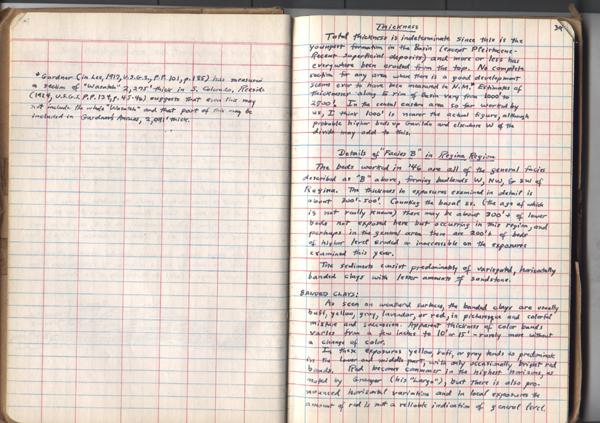 * Gardner (in Lee, 1917, U.S.G.S., P.P. 101, p. 185) has measured
a section of "Wasatch" 2,295' thick in S. Colorado. Reeside
(1924, U.S.G.S., P.P. 134, p. 45-46) suggests that even this may
not include the whole "Wasatch" and that part of this may be
included in Gardner's Animas, 2,091' thick.
39
Thickness
Total thickness is indeterminate since this is the
youngest formation in the Basin (except Pleistocene-
Recent superficial deposits) and more or less has
everywhere been eroded from the top. No complete
section for any area where there is a good development
seems ever to have been measured in N.M.* Estimates of
thickness along E rim of Basin vary from 1000' to
2500'. In the central eastern area so far worked by
us, I think 1000' is nearer the actual figure, although
probable higher beds up Gavilan and elsewhere W of the
divide may add to this.
Details of "Facies B" in Regina Region
The beds worked in '46 are all of the general facies
described as "B" above, forming badlands W, NW, & SW of
Regina. The thickness in exposures examined in detail is
about 300'-500'. Counting the basal ss. (the age of which
is not really known) there may be about 300'± of lower
beds not exposed here but occurring in this region, and
perhaps in the general area there are 200'± of beds
of higher level eroded or inaccessible on the exposures
examined this year.
The sediments consist predominately of variegated, horizontally
banded clays with lesser amounts of sandstone.
BANDED CLAYS:
As seen on weathered surfaces, the banded clays are usually
buff, yellow, gray, lavender, or red, in picturesque and colorful
mixture and succession. Apparent thickness of color bands
varies from a few inches to 10' or 15' - rarely more without
a change of color.
In these exposures yellow, buff, or gray tends to predominate
in the lower and middle part, with only occasionally bright red
bands. Red becomes commoner in the highest horizons, as
noted by Granger (his "Largo"), but there is also pro-
nounced horizontal variation and in local exposures the
amount of red is not a reliable indication of general level.